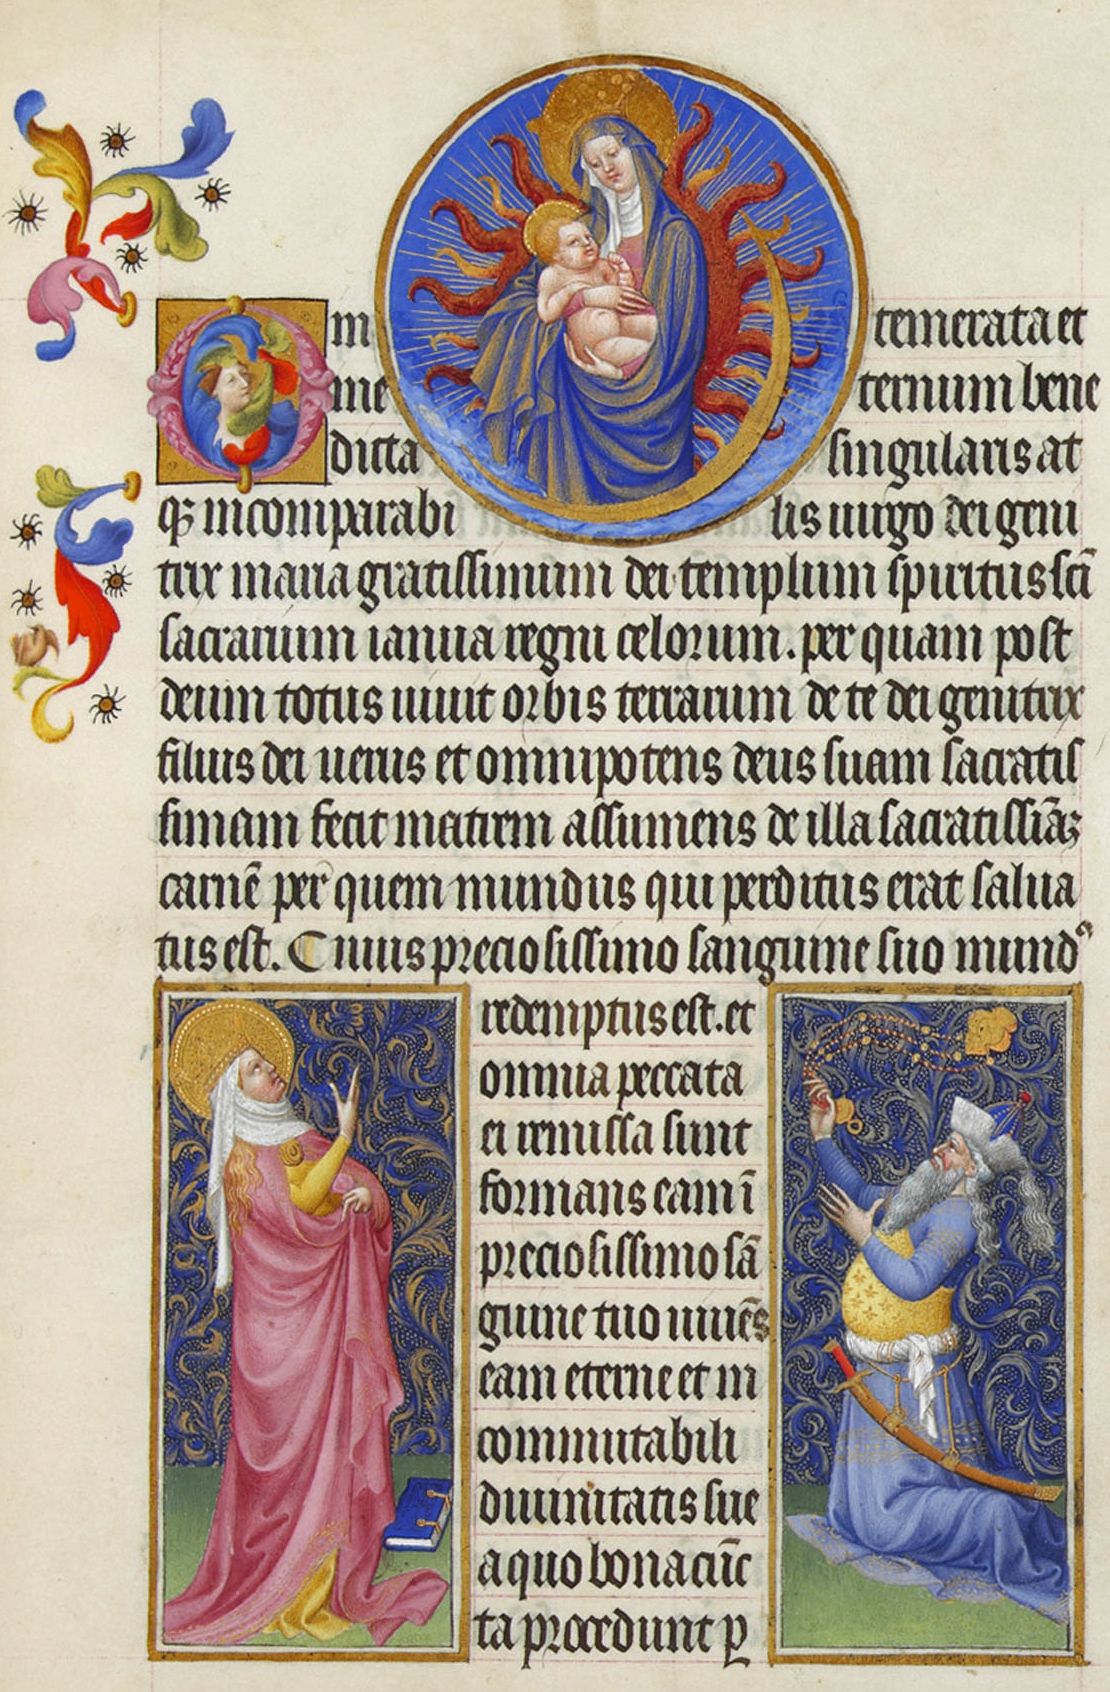 O in temerata et
in e ternum bene
dicta singularis at
qꝫ incomparabi lis uirgo dei geni
trix maria gratissimum dei templum spiritus sc̄i
sacrarium ianua regni celorum. per quam post
deum totus uiuit orbis terrarum de te dei genitrix
filius dei uerus et omnipotens deus suam sacratis
simam fecit matrem assumens de illa sacratissiāꝫ
carnē per quem mundus qui perditus erat salua
tus est. Cuius preciosissimo sanguine suo mundꝰ
redemptus est. et
omnia peccata
ei remissa sunt
formans eam ī
preciosissimo sā
guine tuo uniēs
eam eterne et in
commutabili
diuinitatis sue
a quo bona cūc
ta procedunt ꝑ